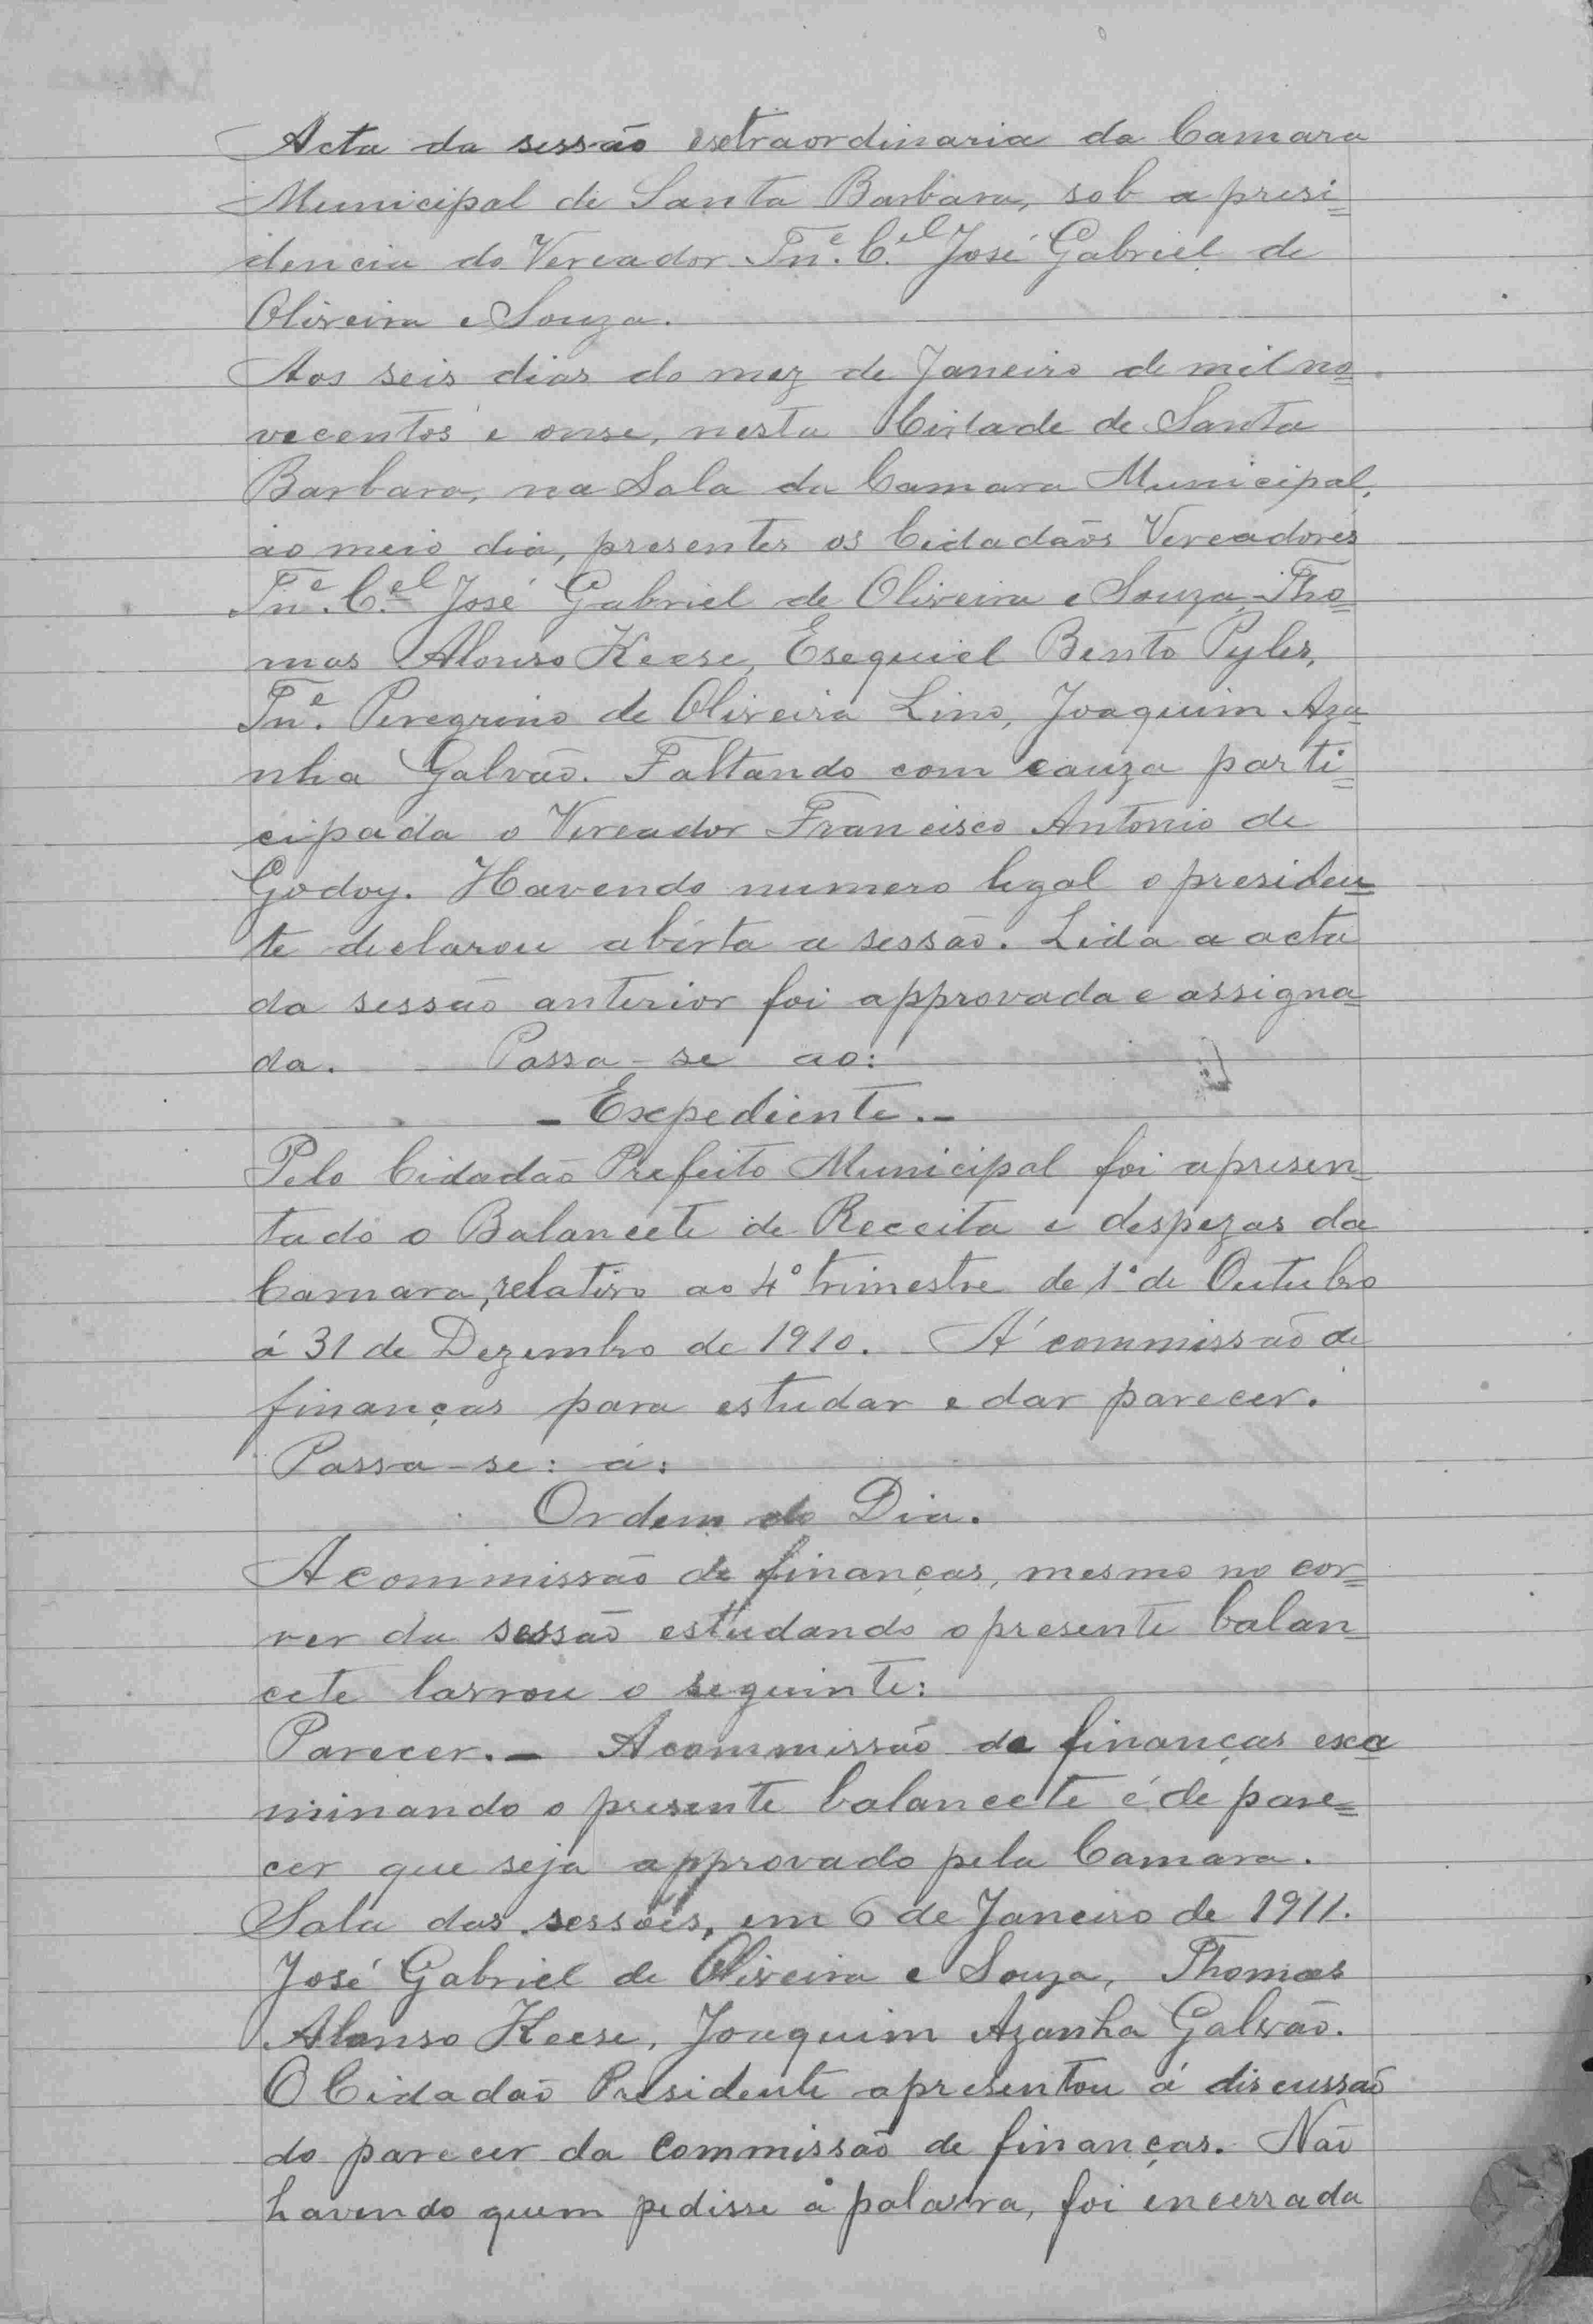 Acta da sessão extraordinaria da Camara
Municipal de Santa Barbara, sob a presi=
dencia do Vereador Tn.e C.el José Gabriel de
Oliveira e Souza.
Aos seis dias do mez de Janeiro de mil no=
vecentos e onse, nesta Cidade de Santa
Barbara, na Sala da Camara Municipal,
ao meio dia, presentes os Cidadãos Vereadores
Tn.e C.el José Gabriel de Oliveira e Souza, Tho=
mas Alonso Keese, Esequiel Bento Pyles,
Tn.e Peregrino de Oliveira Lino, Joaquim Aza-
nha Galvão. Faltando com cauza parti=
cipada o Vereador Francisco Antonio de
Godoy. Havendo numero legal o presiden=
te declarou abérta a sessão. Lida a acta
da sessão anterior foi approvada e assigna=
da. Passa-se ao:
- Expediente.-
Pelo Cidadão Prefeito Municipal foi apresen=
tado o Balancete de Receita e despezas da
Camara, relativo ao 4º trimestre de 1º de Outubro
á 31 de Dezembro de 1910. A' commissão de
finanças para estudar e dar parecer.
Passa-se: á:
Ordem do Dia.
A commissão de finanças, mesmo no cor=
rer da sessão estudando o presente balan=
cete lavrou o seguinte:
Parecer.- A commissão de finanças exa
minando o presente balancete é de pare=
cer que seja approvado pela Camara.
Sala das sessões, em 6 de Janeiro de 1911.
José Gabriel de Oliveira e Souza, Thomas
Alonso Keese, Joaquim Azanha Galvão.
O Cidadão Presidente apresentou á discussão
do parecer da Commissão de finanças. Não
havendo quem pedisse a palavra, foi encerrada